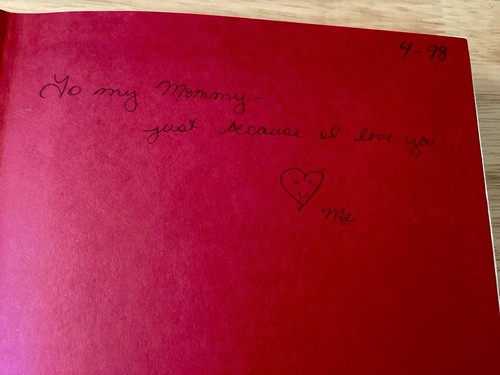 4-98
To my Mommy-
just because I love you
Me